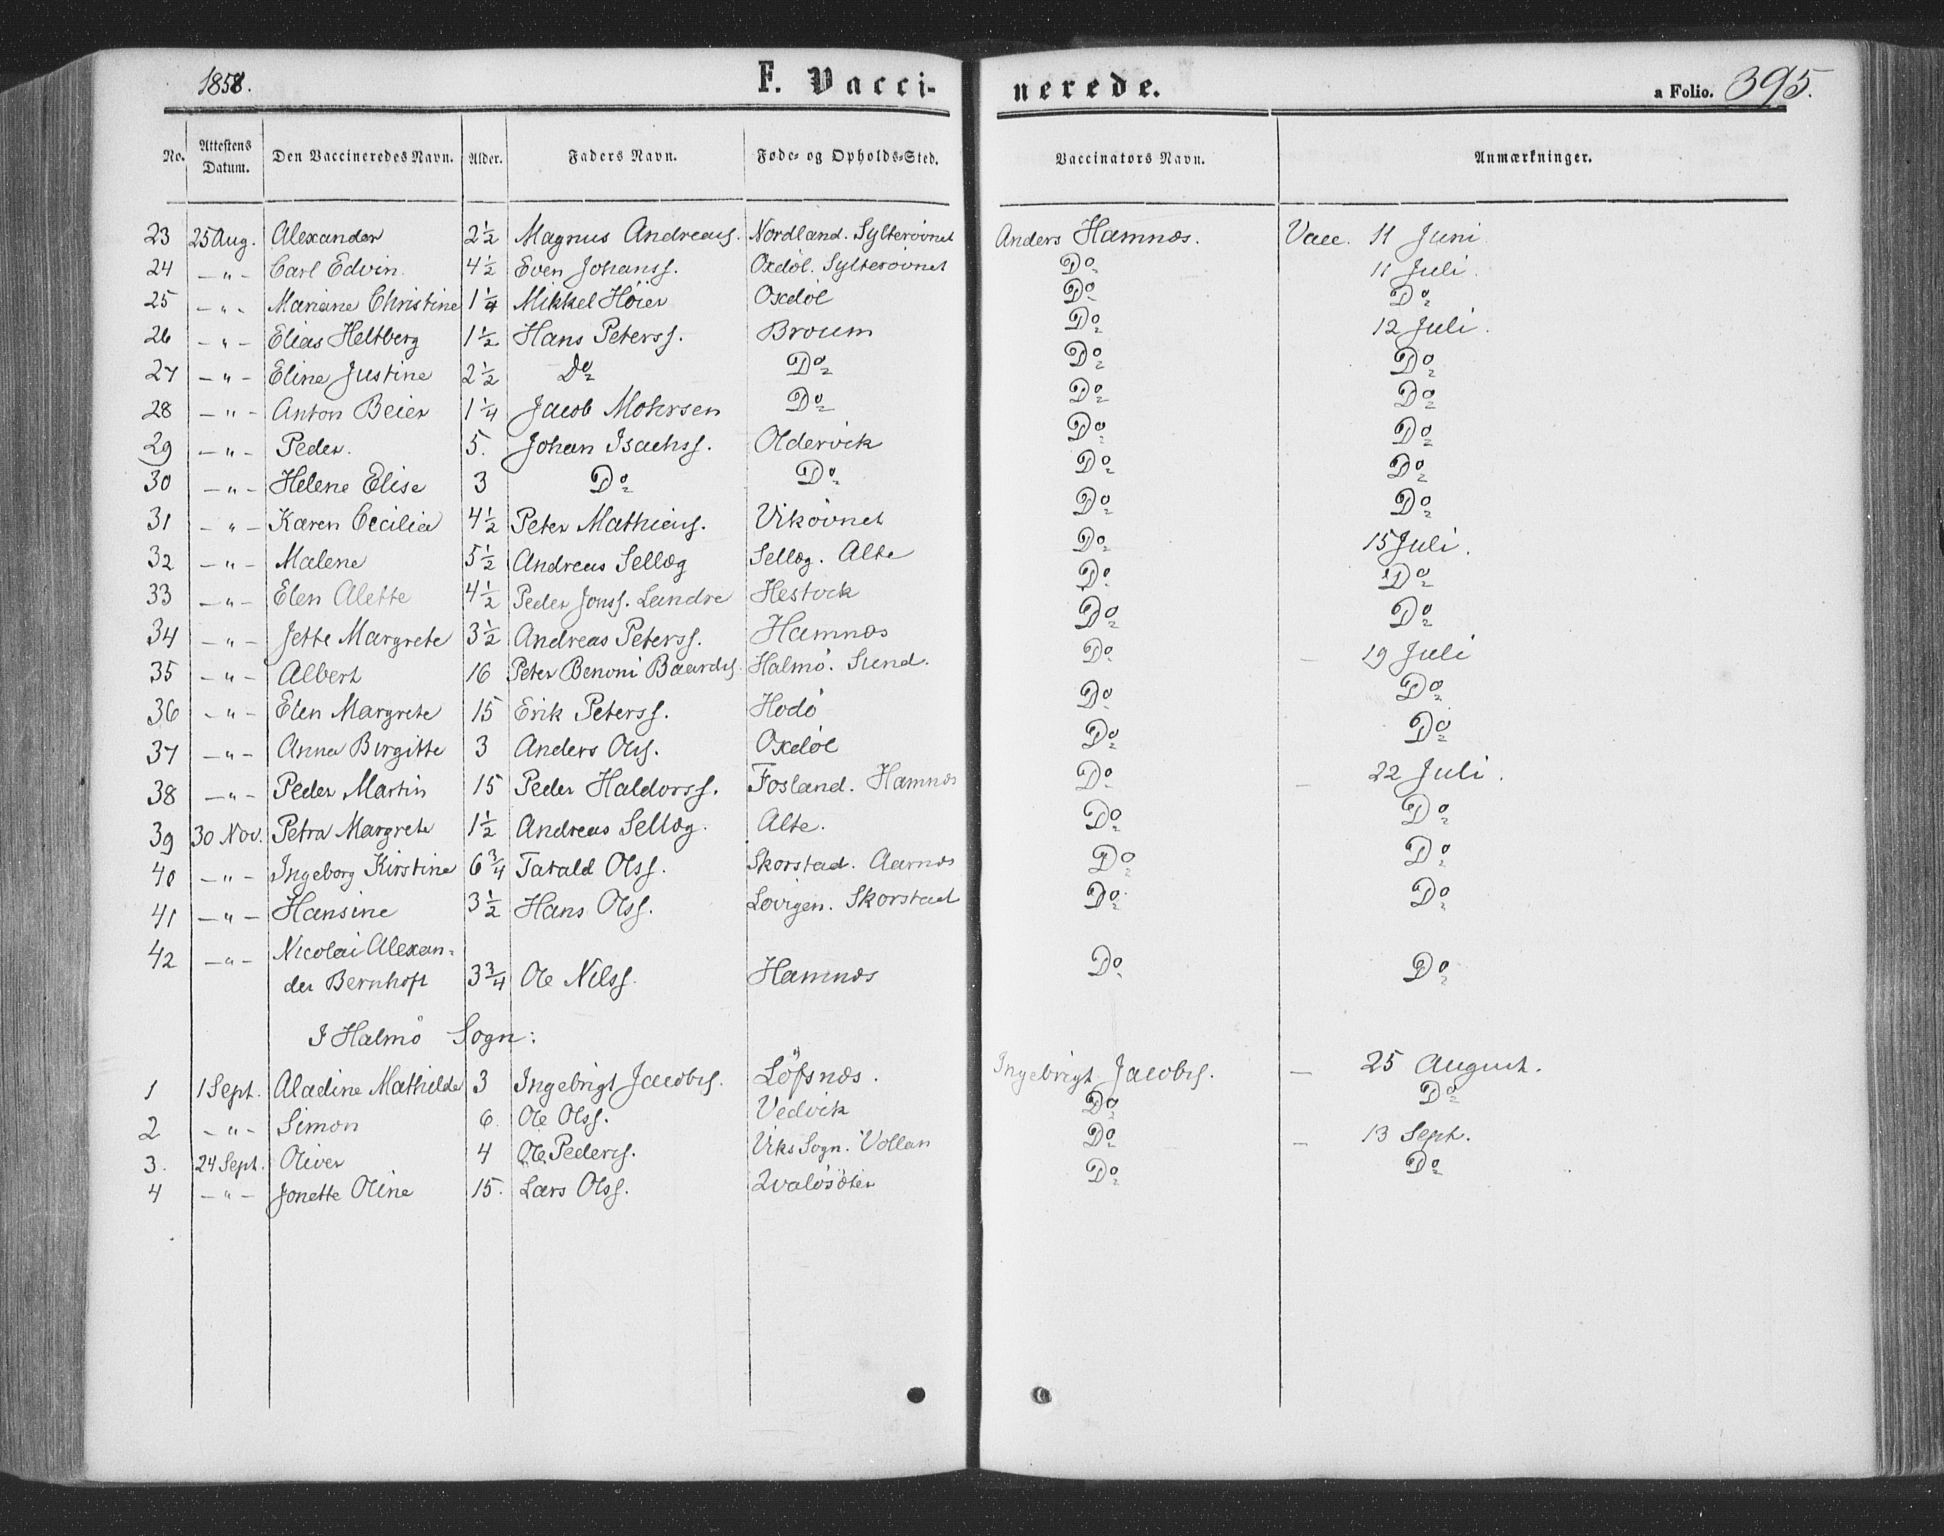 1858. F. Vacci- nerede. a Folio. 395.
No. Attestens Datum. Den Vaccineredes Navn. Alder. Faders Navn. Føde- og Opholds-Sted. Vaccinators Navn. Anmærkninger.
23 25 Aug. Alexander 2 1/2 Magnus Andreass. Nordland. Sylterövnet Anders Hamnæs. Vacc. 11 Juni
24 — " — Carl Edvin 4 1/2 Even Johanss. Oxdöl. Sylterövnet Do 11 Juli.
25 — " — Mariane Christine 1 1/4 Mikkel Höier Oxdöl Do Do
26 — " — Elias Heltberg 1 1/2 Hans Peterss. Broum Do 12 Juli.
27 — " — Eline Justine 2 1/2 Do Do Do Do
28 — " — Anton Beier 1 1/4 Jacob Mohrsen Do Do Do
29 — " — Peder. 5. Johan Isachss. Oldervik Do Do
30 — " — Helene Elise 3 Do Do Do Do
31 — " — Karen Cecilia 4 1/2 Peter Mathiass. Vikövnet Do Do
32 — " — Malene 5 1/2 Andreas Sellæg Sellæg. Alte Do 15 Juli.
33 — " — Elen Alette 4 1/2 Peder Jonss. Landre Hestvik Do Do
34 — " — Jette Margrete 3 1/2 Andreas Peterss. Hamnæs Do Do
35 — " — Albert 16 Peter Benoni Baards. Halmö. Sund. Do — 19 Juli
36 — " — Elen Margrete 15 Erik Peterss. Hodö Do Do
37 — " — Anna Birgitte 3 Anders Olss. Oxdöl Do Do
38 — " — Peder Martin 15 Peder Haldorss. Fosland. Hamnæs Do — 22 Juli.
39 30 Nov. Petra Margrete 1 1/2 Andreas Sellæg. Alte. Do Do
40 — " — Ingeborg Kirstine 6 3/4 Tarald Olss. Skorstad. Aarnæs Do Do
41 — " — Hansine 3 1/2 Hans Olss. Lovigen. Skorstad Do Do
42 — " — Nicolai Alexan-
der Bernhoft 3 3/4 Ole Nilss. Hamnæs Do Do
I Halmö Sogn:
1 1 Sept. Aladine Mathilde 3 Ingebrigt Jacobs. Löfsnæs. Ingebrigt Jacobs. — 25 August.
2 — " — Simon 6. Ole Olss. Vedvik Do Do
3. 24 Sept. Oliver 4 Ole Peders. Viks Sogn. Vollan Do — 13 Sept.
4 — " — Jonette Oline 15. Lars Olss. Do Do